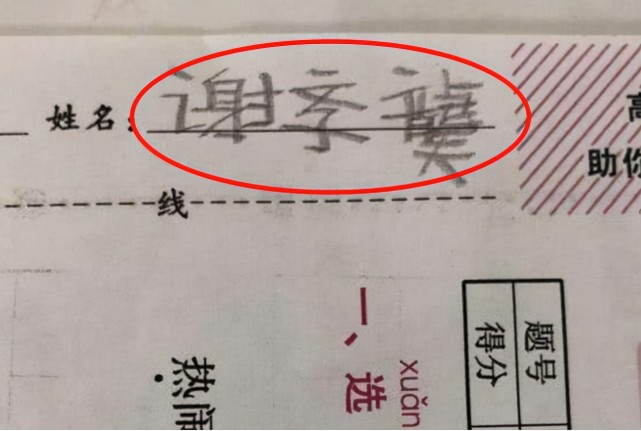 姓名：谢
助你
线
一、选
xuǎn
题号
得分
热闹